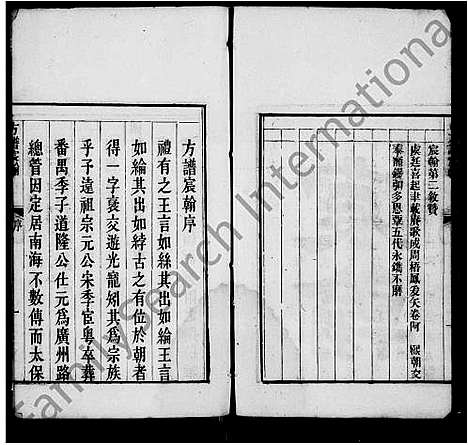 宸翰第二敘贊
虞廷喜起聿載賡歌成周梧鳳爰矢卷阿 熙朝交
泰 多恩覃五代永鐫不磨
方譜宸翰序
禮有之王言如絲其出如綸王言
如綸其出如綍古之有位於朝者
得一字褒交遊光寵矧其為宗族
乎子遠祖宗元公宋季宦粵卒葬
番禺季子道隆公仕元為廣州路
總管因定居南海不數傳而太保
方譜宸翰
序
FamilySearch International